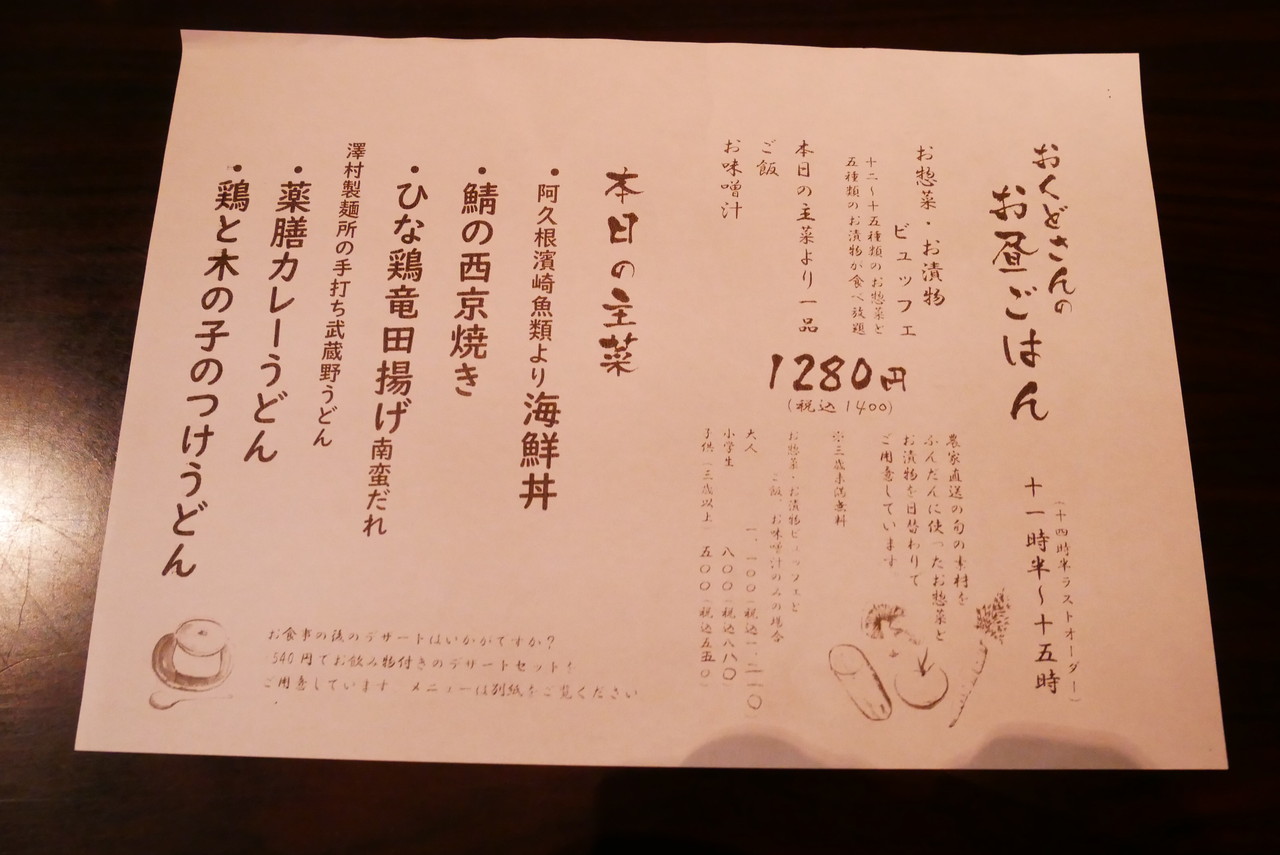 おくどさんの
お昼ごはん
(十四時半ラストオーダー)
十一時半～十五時
お惣菜・お漬物
ビュッフェ
十二～十五種類のお惣菜と
五種類のお漬物が食べ放題
本日の主菜より一品
ご飯
お味噌汁
1280円
(税込1400)
農家直送の旬の素材を
ふんだんに使ったお惣菜と
お漬物を日替わりで
ご用意しています
※三歳未満無料
お惣菜・お漬物ビュッフェと
ご飯、お味噌汁のみの場合
大人 一、一〇〇(税込一、二一〇)
小学生 八〇〇(税込八八〇)
子供(三歳以上) 五〇〇(税込五五〇)
本日の主菜
・阿久根濱崎魚類より海鮮丼
・鯖の西京焼き
・ひな鶏竜田揚げ南蛮だれ
澤村製麺所の手打ち武蔵野うどん
・薬膳カレーうどん
・鶏と木の子のつけうどん
お食事の後のデザートはいかがですか?
540円でお飲み物付きのデザートセットを
ご用意しています メニューは別紙をご覧ください